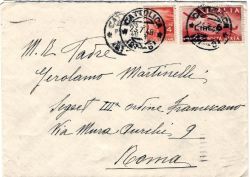 CATTOLICA
4
M. R. Padre
Gerolamo Martinelli
Segret IIIº ordine Francescano
Via Mura Aurelie 9
Roma